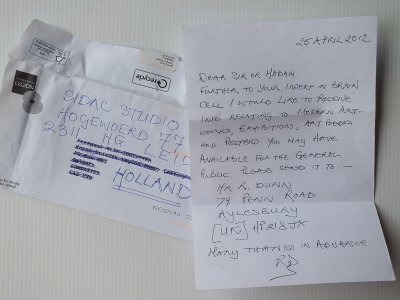 LEGION
recycle
SIDAC STUDIO
HOGEWOERD 77
2311 HG LEI
HOLLAND
25 APRIL 2012
DEAR SIR OR MADAM
FURTHER TO YOUR INSERT IN BRAIN
CELL I WOULD LIKE TO RECEIVE
INFO RELATING TO MODERN ART-
WORKS, EXHIBITIONS, ART BOOKS
AND POSTERS YOU MAY HAVE
AVAILABLE FOR THE GENERAL
PUBLIC. PLEASE SEND IT TO :—
MR R. DUNN
79 PENN ROAD
AYLESBURY
[UK] HP21 8JX
MANY THANKS IN ADVANCE
RD